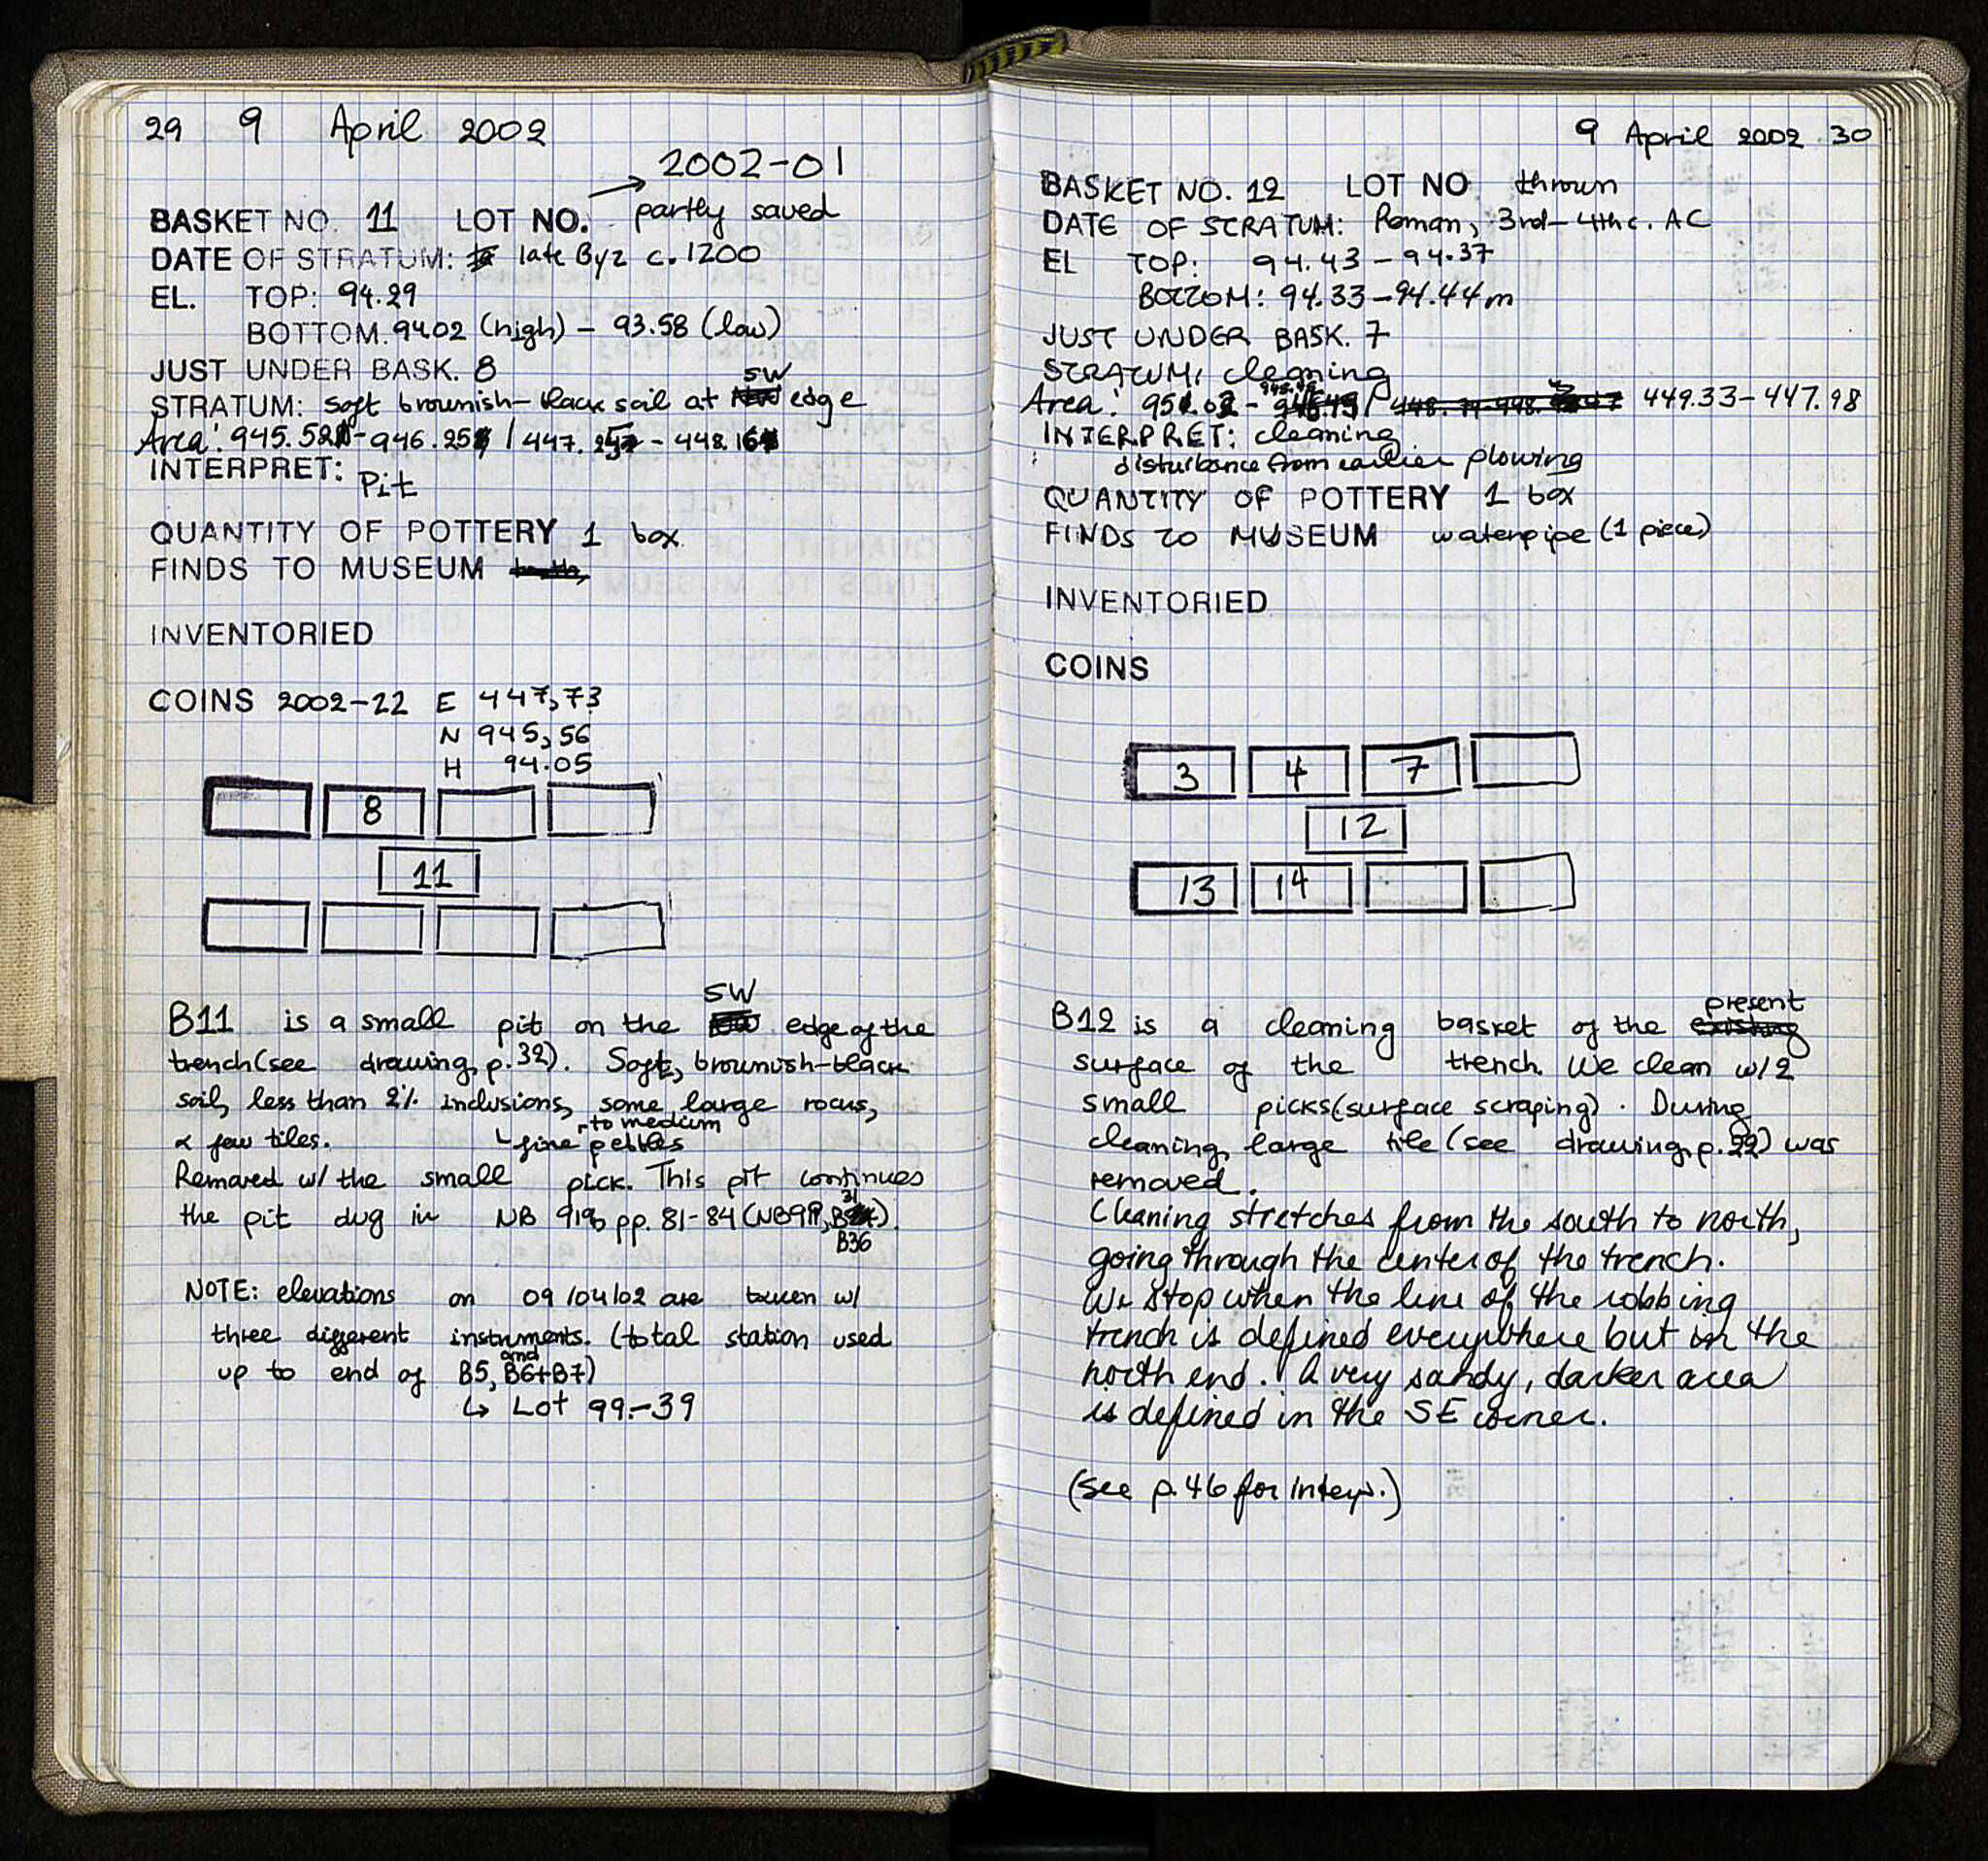 29 9 April 2002
2002-01
BASKET NO. 11 LOT NO. → partly saved
DATE OF STRATUM: late Byz c. 1200
EL. TOP: 94.29
BOTTOM. 94.02 (high) – 93.58 (low)
JUST UNDER BASK. 8
STRATUM: soft brownish-black soil at SW edge
Area: 945.52 - 946.25 / 447.25 - 448.16
INTERPRET: Pit
QUANTITY OF POTTERY 1 box
FINDS TO MUSEUM
INVENTORIED
COINS 2002-22 E 447,73
N 945,56
H 94.05
8
11
B11 is a small pit on the SW edge of the
trench (see drawing, p.32). Soft, brownish-black
soil, less than 2% inclusions, some large rocks,
& few tiles. fine to medium pebbles
Removed w/ the small pick. This pit continues
the pit dug in NB 919, pp. 81-84 (NB 919, B31
B36
NOTE: elevations on 09/04/02 are taken w/
three different instruments. (total station used
up to end of B5, and B6+B7)
↳ Lot 99-39
9 April 2002 30
BASKET NO. 12 LOT NO thrown
DATE OF STRATUM: Roman, 3rd-4th c. AC
EL TOP: 94.43 - 94.37
BOTTOM: 94.33-94.44m
JUST UNDER BASK. 7
STRATUM: cleaning
Area: 449.33-447.98
INTERPRET: cleaning
disturbance from earlier plowing
QUANTITY OF POTTERY 1 box
FINDS TO MUSEUM waterpipe (1 piece)
INVENTORIED
COINS
3 4 7
12
13 14
B12 is a cleaning basket of the existing present
surface of the trench. We clean w/ 2
small picks (surface scraping). During
cleaning, large tile (see drawing, p. ) was
removed.
Cleaning stretches from the south to north,
going through the center of the trench.
We stop when the line of the robbing
trench is defined everywhere but in the
north end. A very sandy, darker area
is defined in the SE corner.
(see p. 46 for interp.)